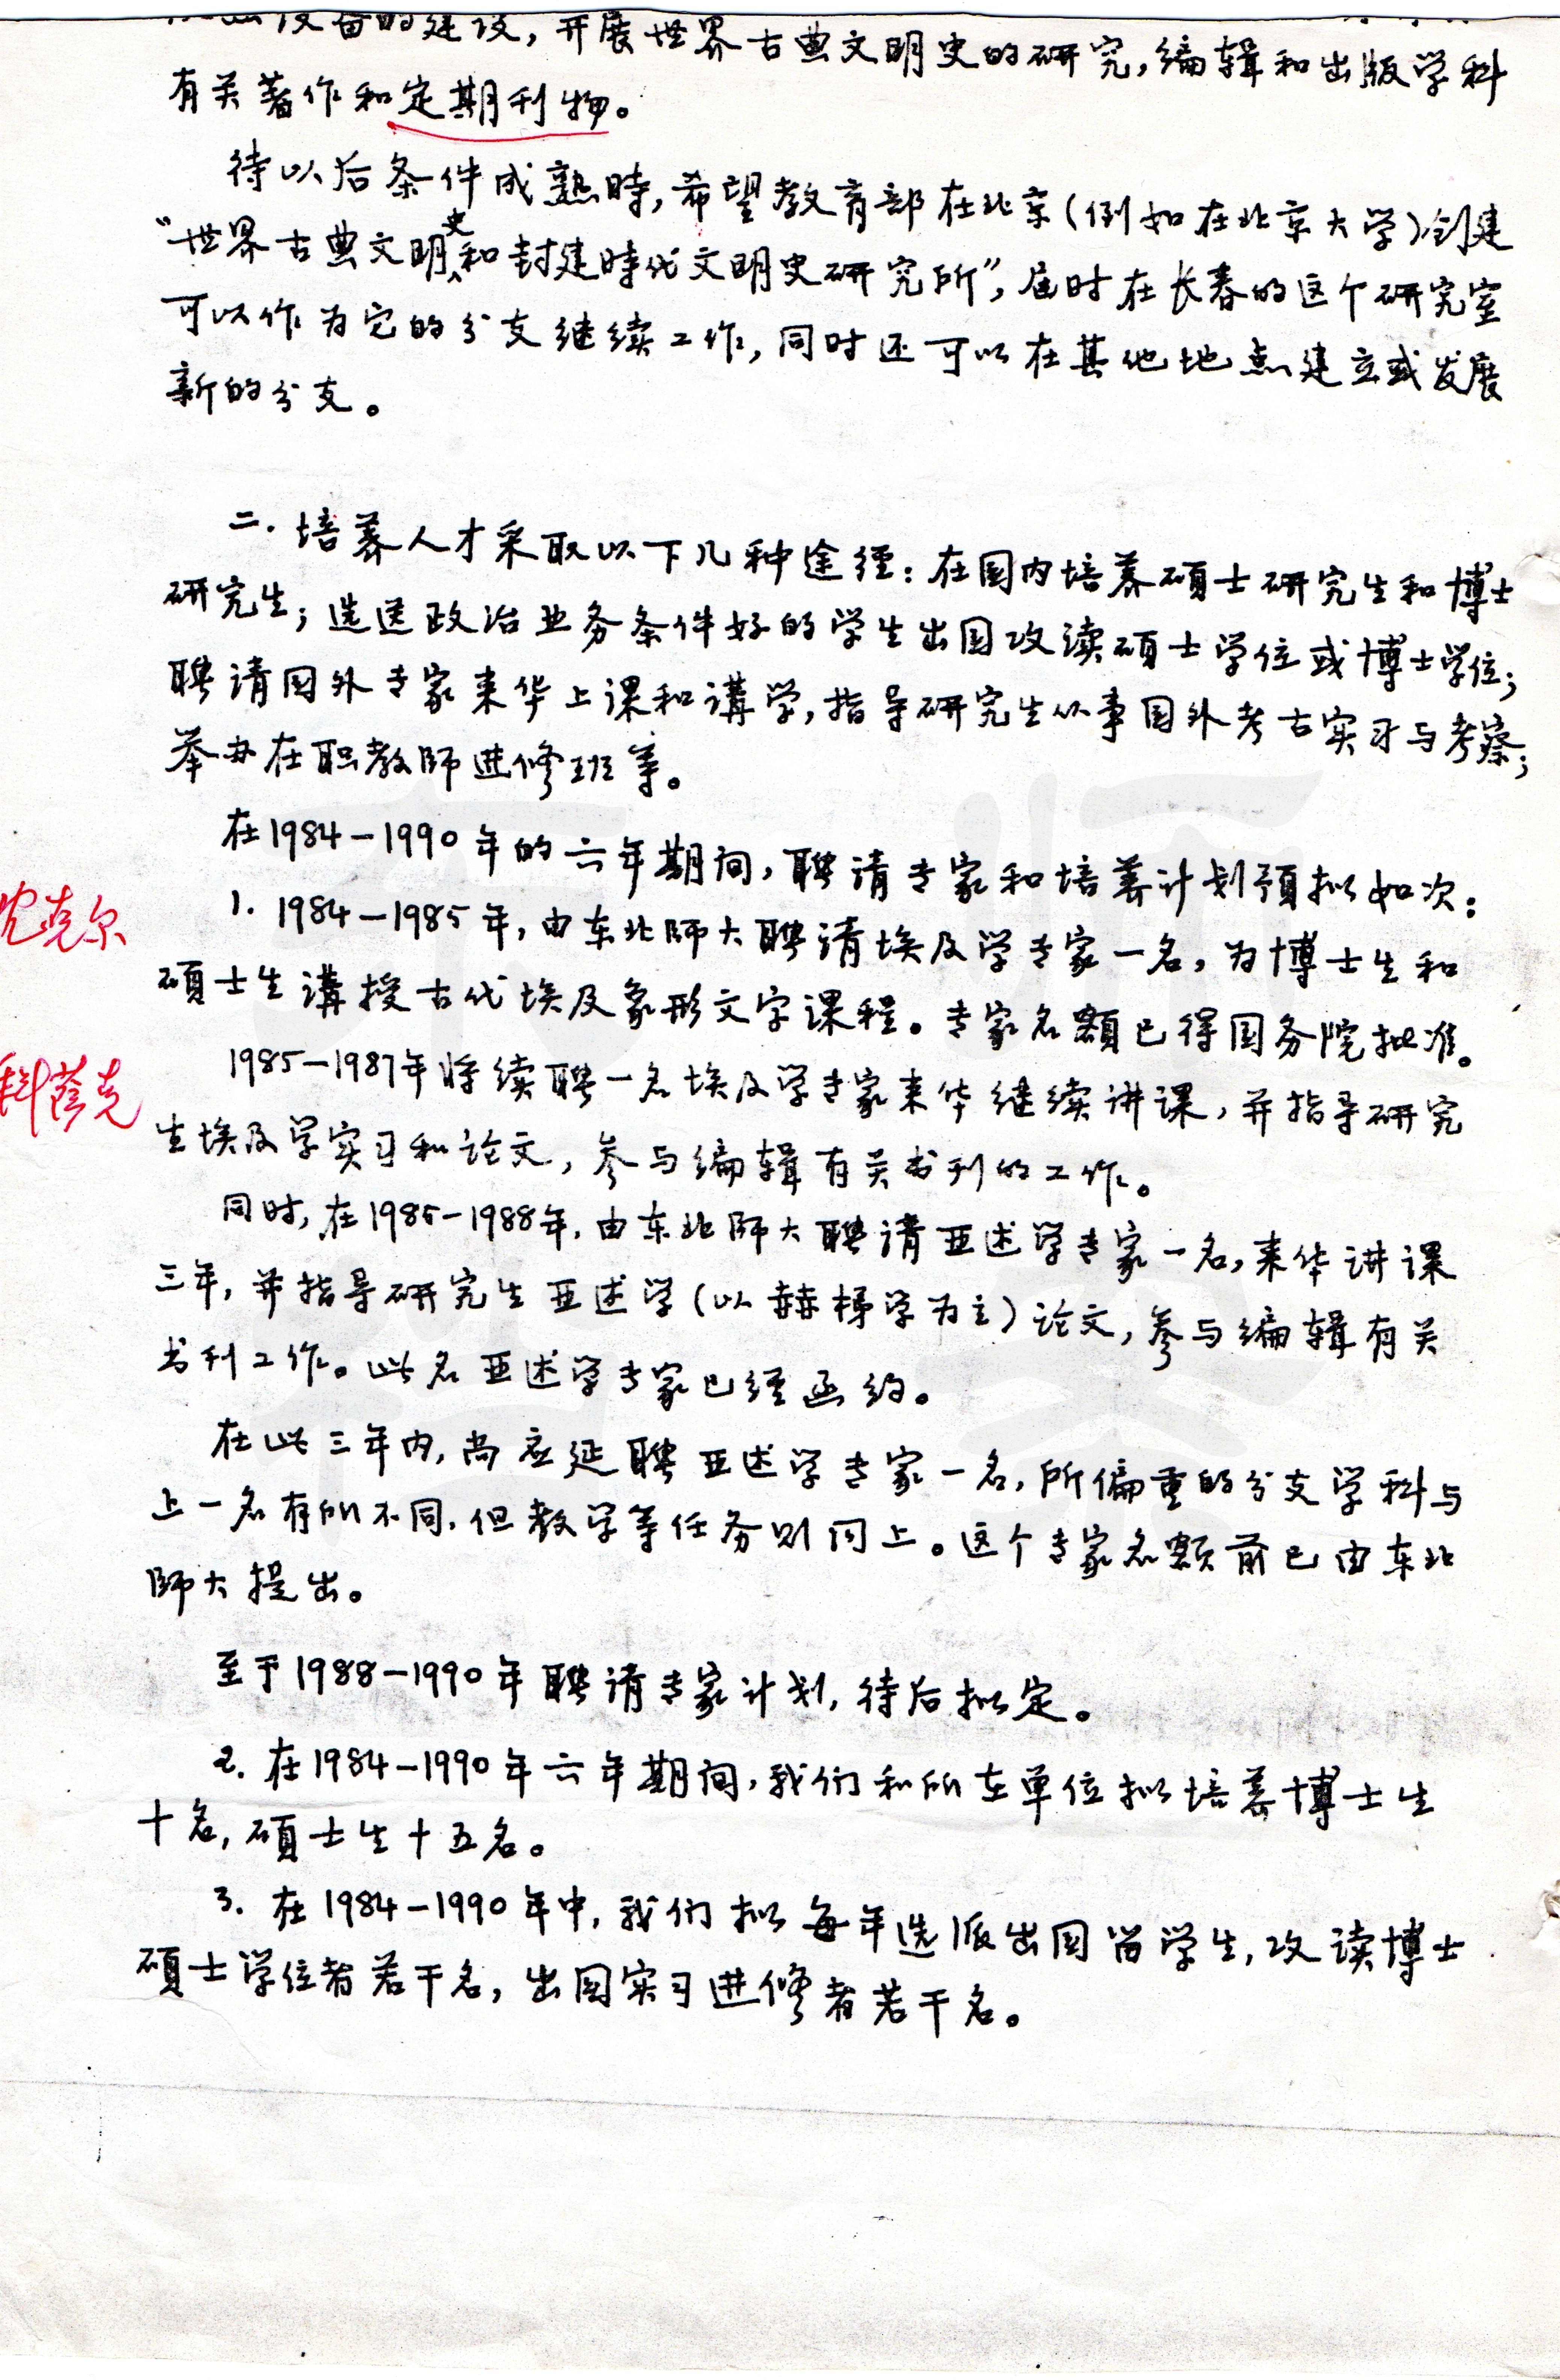 设备的建设，开展世界古典文明史的研究，编辑和出版学科
有关著作和定期刊物。
待以后条件成熟時，希望教育部在北京（例如在北京大学）创建
“世界古典文明史和封建時代文明史研究所”，届时在长春的这个研究室
可以作为它的分支继续工作，同时还可以在其他地点建立或发展
新的分支。
二．培养人才采取以下几种途径：在国内培养碩士研究生和博士
研究生；选送政治业务条件好的学生出国攻读碩士学位或博士学位；
聘请国外专家来华上课和講学，指导研究生从事国外考古实习与考察；
举办在职教师进修班等。
在1984－1990年的六年期间，聘请专家和培养计划預拟如次：
沈克尔
1. 1984－1985年，由东北师大聘请埃及学专家一名，为博士生和
碩士生講授古代埃及象形文字课程。专家名额已得国务院批准。
科蓓克
1985－1987年将续聘一名埃及学专家来华继续讲课，并指导研究
生埃及学实习和论文，参与编辑有关书刊的工作。
同时，在1985－1988年，由东北师大聘请亚述学专家一名，来华讲课
三年，并指导研究生亚述学（以赫梯学为主）论文，参与编辑有关
书刊工作。此名亚述学专家已经函约。
在此三年内，尚应延聘亚述学专家一名，所偏重的分支学科与
上一名有所不同，但教学等任务则同上。这个专家名额前已由东北
师大提出。
至于1988－1990年聘请专家计划，待后拟定。
2. 在1984－1990年六年期间，我们和所在单位拟培养博士生
十名，碩士生十五名。
3. 在1984－1990年中，我们拟每年选派出国留学生，攻读博士
碩士学位者若干名，出国实习进修者若干名。